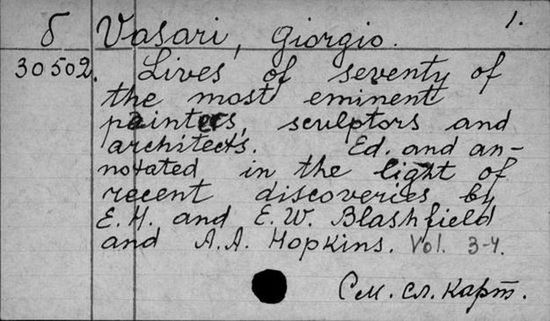 1.
б Vasari, Giorgio.
30502. Lives of seventy of
the most eminent
painters, sculptors and
architects. Ed. and an-
notated in the light of
recent discoveries by
E.H. and E.W. Blashfield
and A.A. Hopkins. Vol. 3-4.
См. сл. карт.